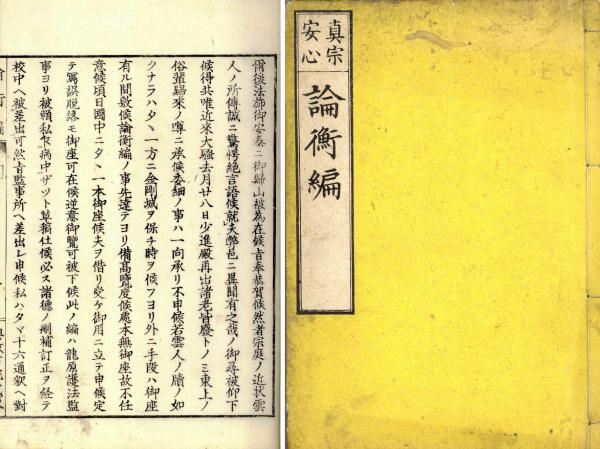 真宗
安心
論衡編
爾後法師御安泰ニ御歸山被為在候旨奉恭賀候然者宗庭ノ近狀雲
人ノ所傳誠ニ驚愕絶言語候就夫弊邑ニ異聞有之哉ノ御尋被仰下
候得共唯近來大騷去月廿八日少進殿再出諸老皆廢トノミ東上ノ
俗輩歸來ノ噂ニ承候委細ノ事ハ一向承リ不申候若雲人ノ牘ノ如
クナラハタヽ一方ニ金剛城ヲ保チ時ヲ候フヨリ外ニ手段ハ御座
有ル間敷候論衡編ノ事先達テヨリ備高覽度候處本無御座故不任
意候頃日國中ニタヽ一本御座候夫ヲ借リ受ケ御用ニ立テ申候定
テ寫誤脱落モ御座可在候逆意御覽可被下候此ノ編ハ龍原護法監
事ヨリ被頼私乍病中ザツト草稿仕候必ス諸德ノ刪補訂正ヲ經テ
校中ヘ被差出可然旨監事所ヘ差出シ申候私ハタマ十六通釈ヘ對